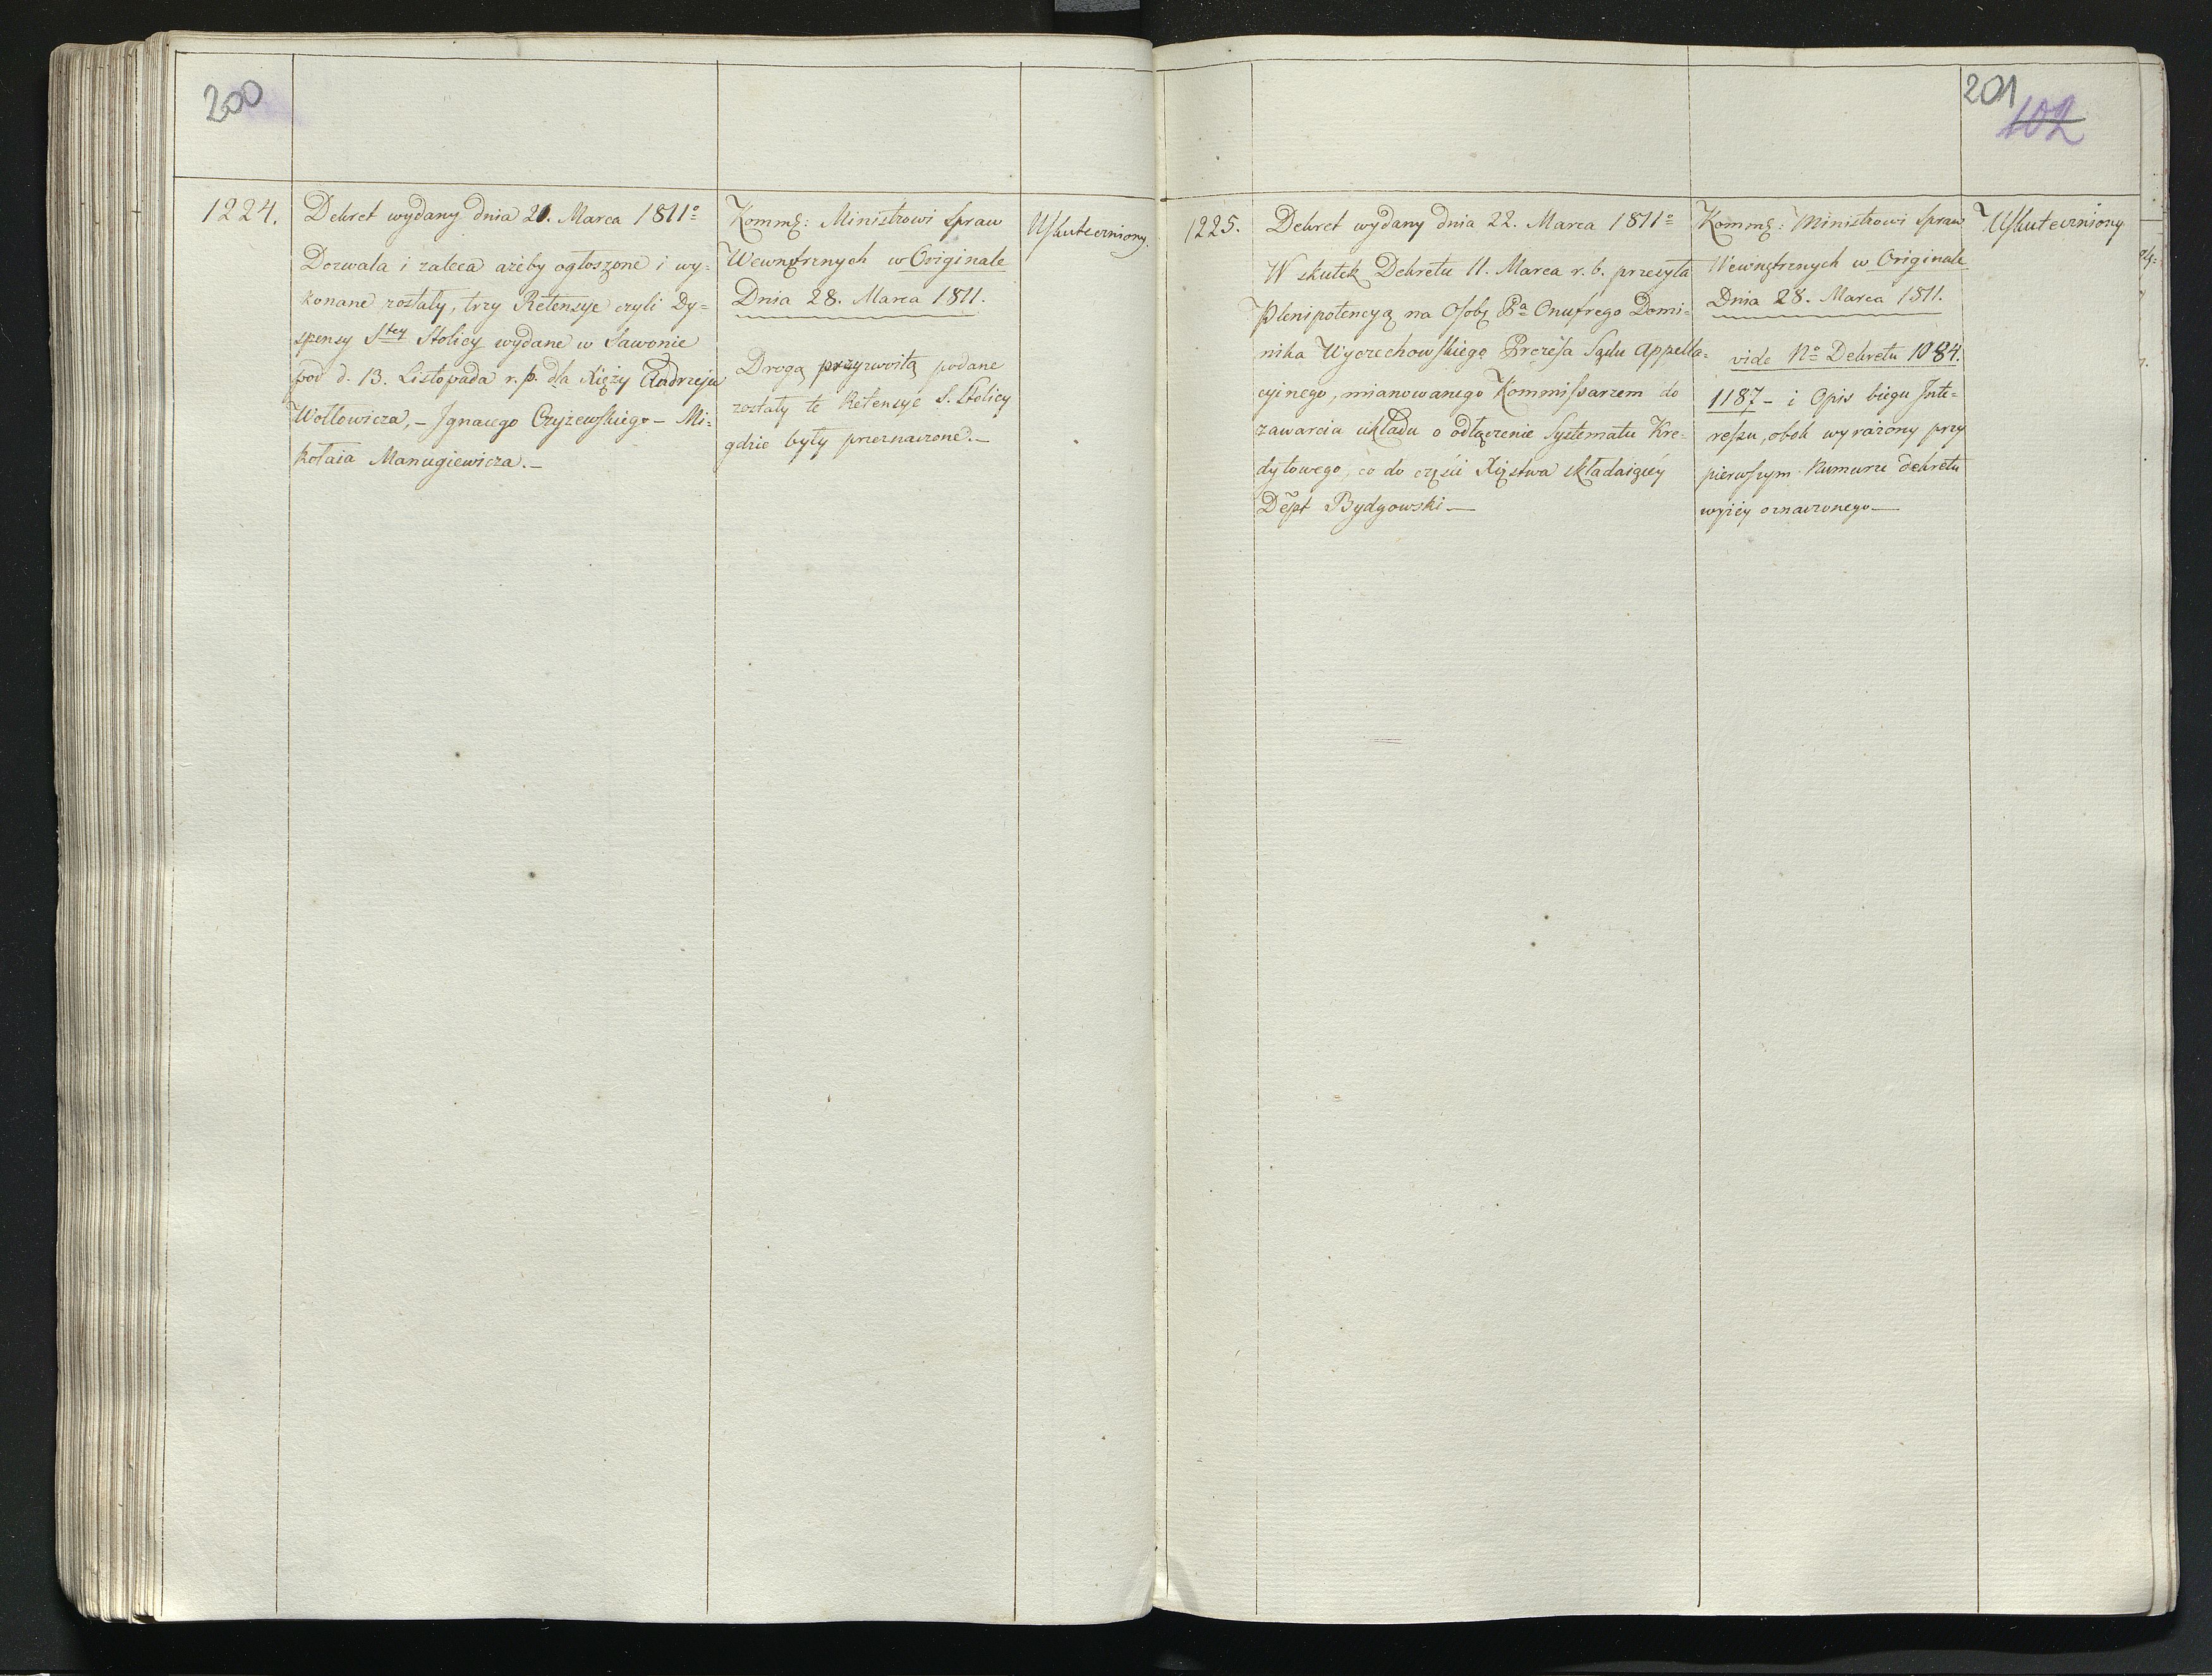 200
1224.
Dekret wydany dnia 21. Marca 1811º
Dozwala i zaleca ażeby ogłoszone i wy=
konane zostały, trzy Retensye czyli Dy=
spensy Stey Stolicy wydane w Sawonie
pod d. 13. Listopada r. p. dla Xięży Andrzeja
Wołłowicza, – Jgnacego Czyżewskiego – Mi=
kołaia Manugiewicza. –
Kommę: Ministrowi Spraw
Wewnętrznych w Originale
Dnia 28. Marca 1811.
Drogą przyzwoitą podane
zostały te Retensye S. Stolicy
gdzie były przeznaczone. –
Uskuteczniony.
201
102
1225.
Dekret wydany dnia 22. Marca 1811º
W skutek Dekretu 11. Marca r. b. przesyła
Plenipotencyą na Osobę Pa Onufrego Domi=
nika Wyczechowskiego Prezesa Sądu Appella=
cyinego, mianowanego Kommissarzem do
zawarcia układu o odłączenie Systematu Kre=
dytowego, co do części Xięstwa składaiącéy
Dept Bydgowski –
Kommę: Ministrowi Spraw
Wewnętrznych w Originale
Dnia 28. Marca 1811.
vide Nº Dekretu 1084.
1187 – i Opis biegu Jnte=
ressu, obok wyrażony przy
pierwszym Numerze dekretu
wyżéy oznaczonego –
Uskuteczniony